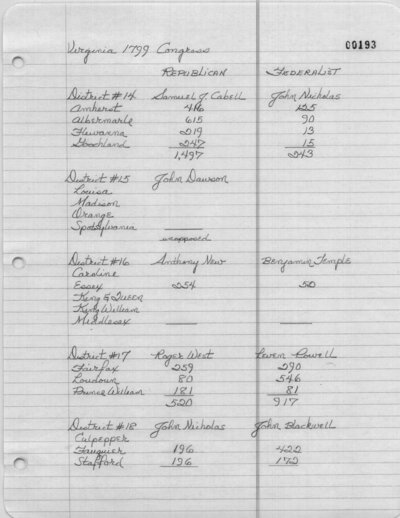 00193
Virginia 1799 Congress
REPUBLICAN FEDERALIST
District #14 Samuel J. Cabell John Nicholas
Amherst 416 125
Albermarle 615 90
Fluvanna 219 13
Goochland 247 15
1,497 243
District #15 John Dawson
Louisa
Madison
Orange
Spotsylvania
unopposed
District #16 Anthony New Benjamin Temple
Caroline
Essex 254 50
King & Queen
King William
Middlesex
District #17 Roger West Leven Powell
Fairfax 259 290
Loudoun 80 546
Prince William 181 81
520 917
District #18 John Nicholas John Blackwell
Culpepper
Fauquier 196 422
Stafford 196 172